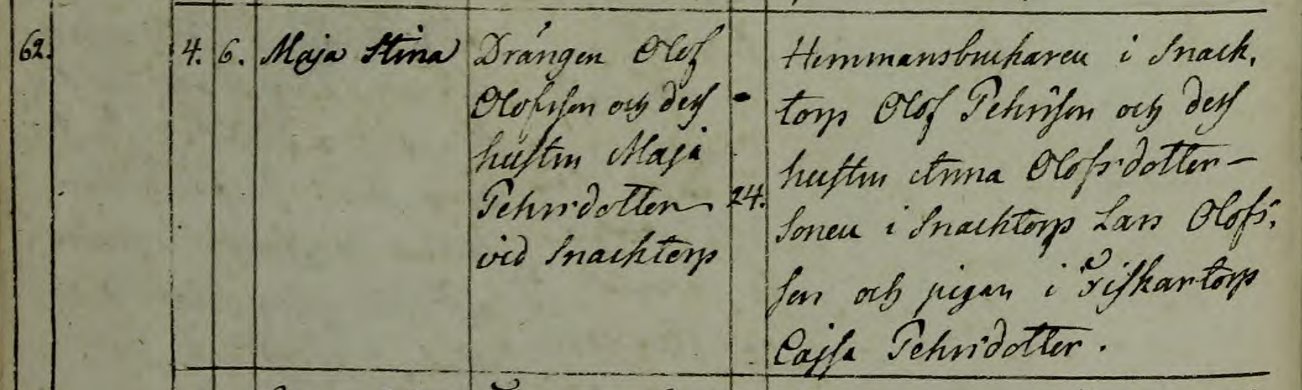 62.
4. 6. Maja Stina
Drängen Olof
Olofsson och dess
hustru Maja
Pehrsdotter
vid Snacktorp
24.
Hemmansbrukaren i Snack,
torp Olof Pehrsson och dess
hustru Anna Olofsdotter –
Sonen i Snacktorp Lars Olofs,
son och pigan i Fiskartorp
Cajsa Pehrsdotter.